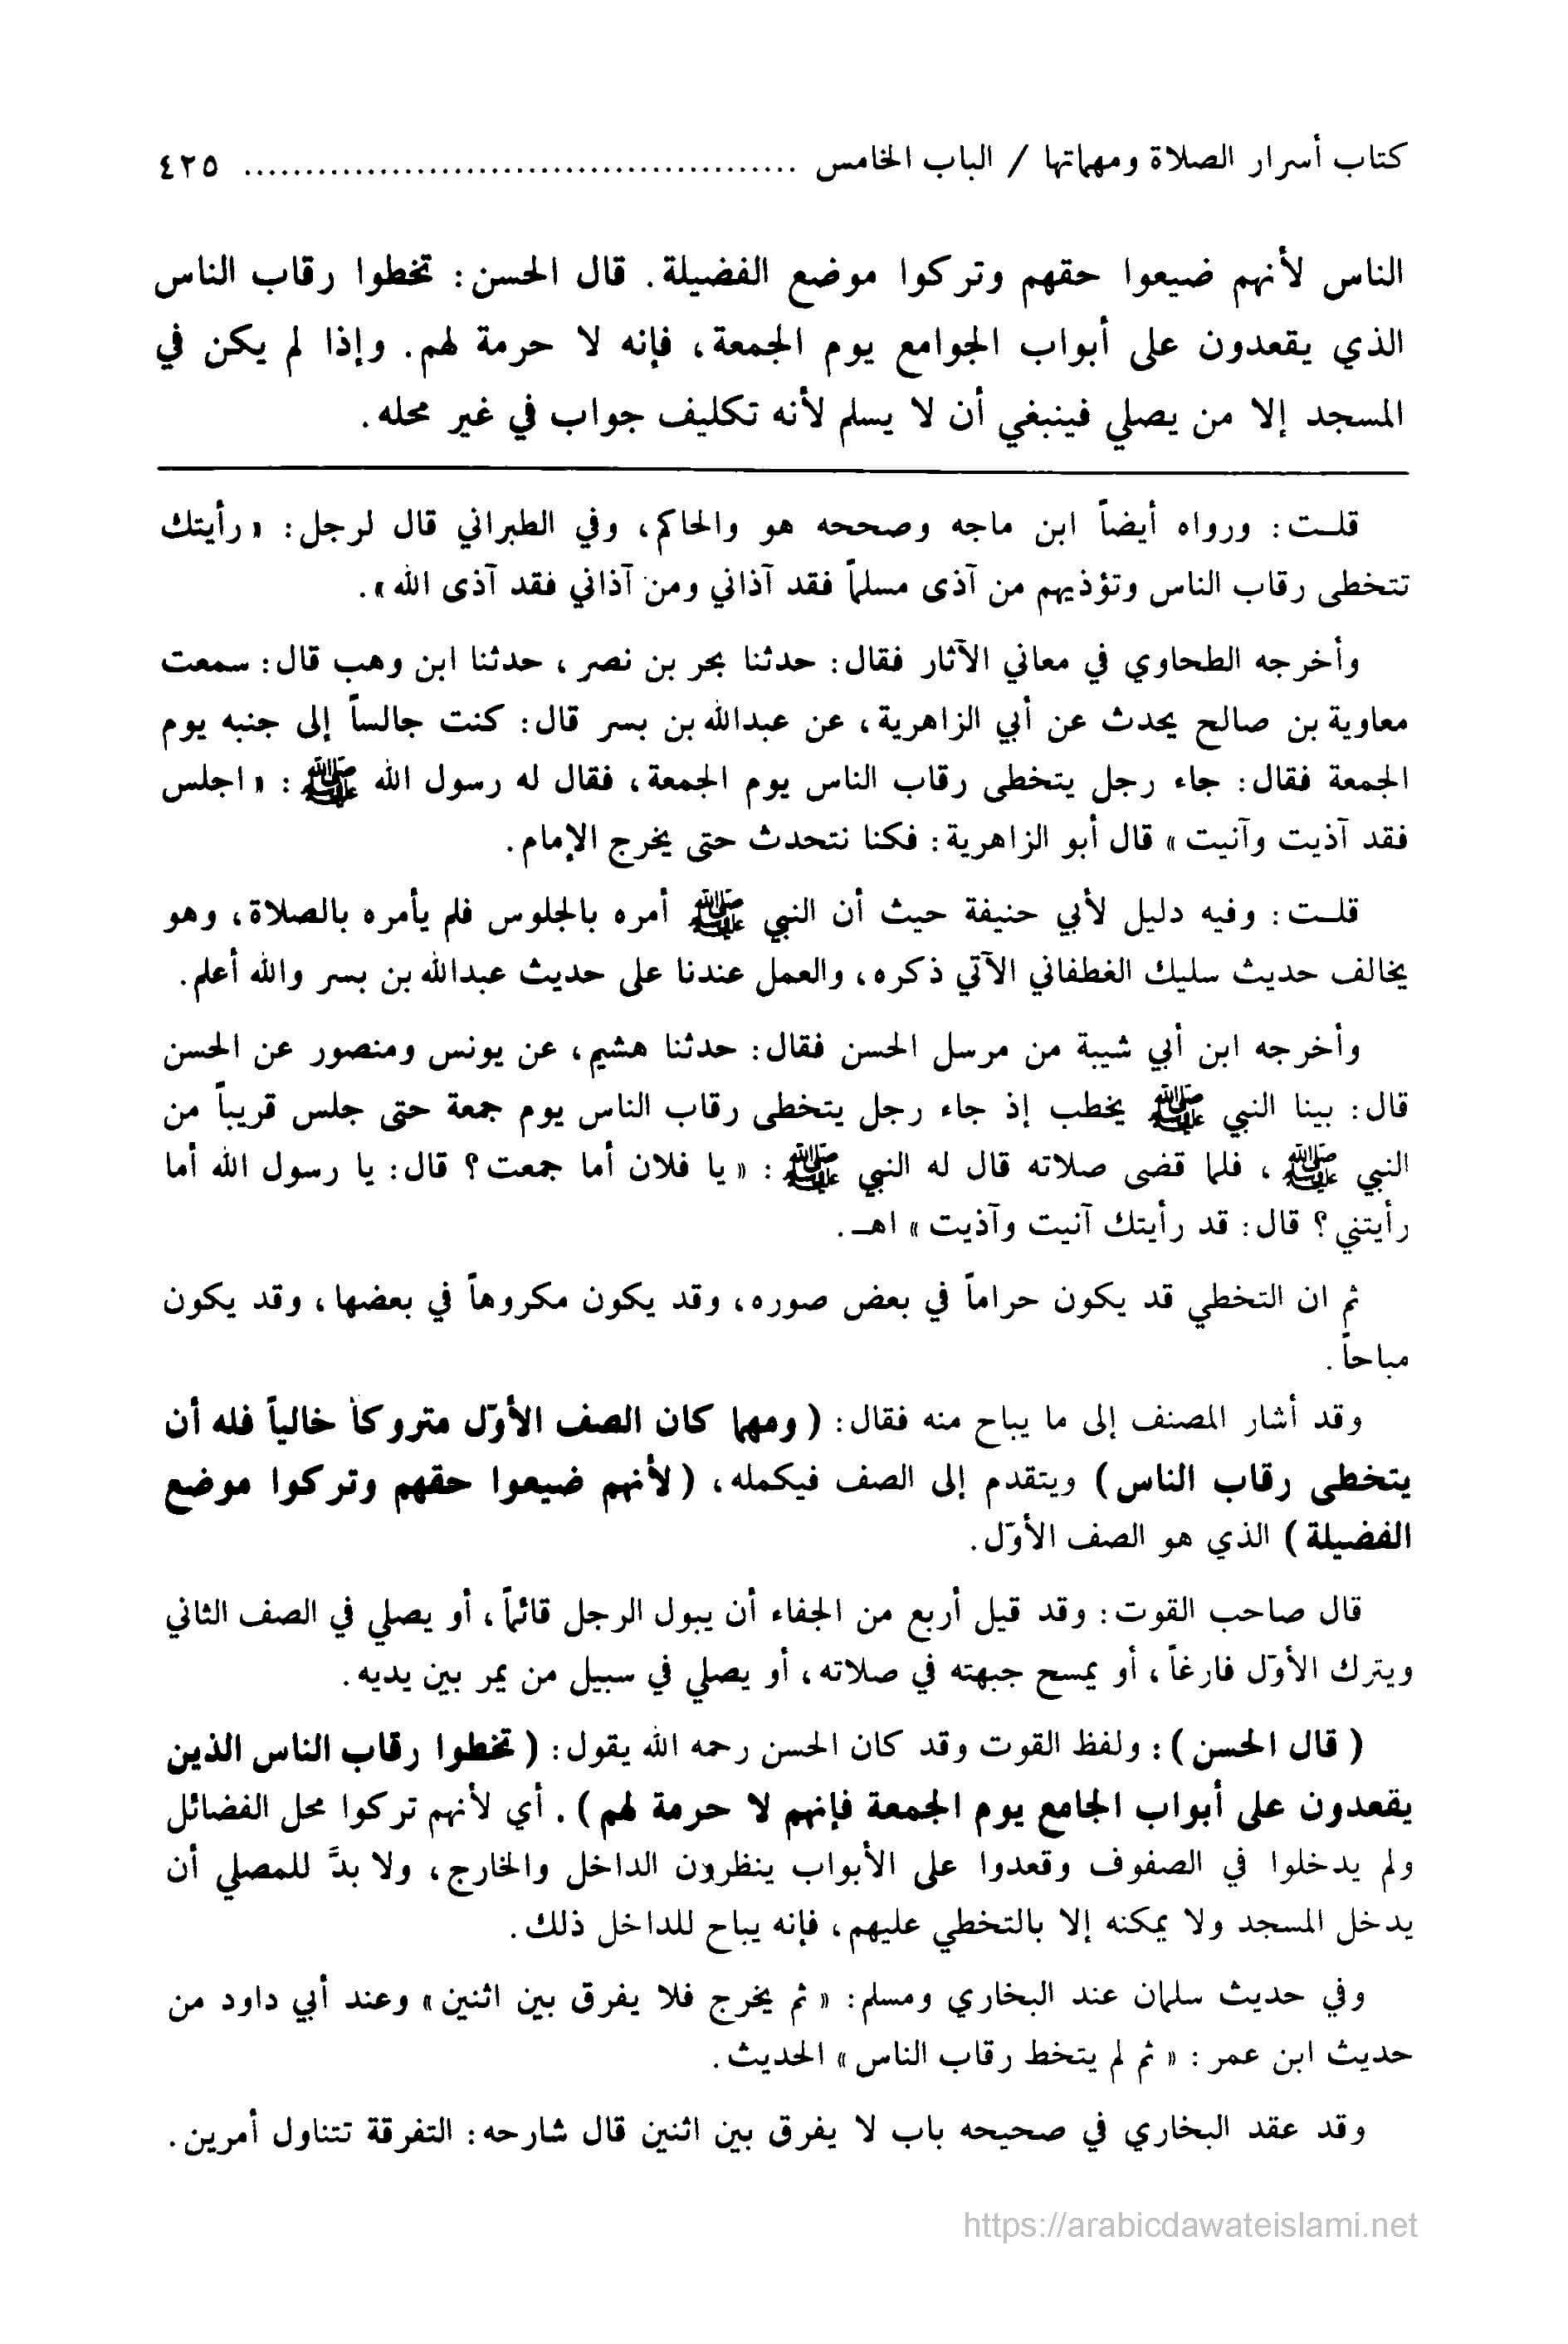 كتاب أسرار الصلاة ومهماتها / الباب الخامس .............................................. ٤٢٥
الناس لأنهم ضيعوا حقهم وتركوا موضع الفضيلة. قال الحسن: تخطوا رقاب الناس
الذي يقعدون على أبواب الجوامع يوم الجمعة، فإنه لا حرمة لهم. وإذا لم يكن في
المسجد إلا من يصلي فينبغي أن لا يسلم لأنه تكليف جواب في غير محله.
قلـت: ورواه أيضاً ابن ماجه وصححه هو والحاكم، وفي الطبراني قال لرجل: «رأيتك
تتخطى رقاب الناس وتؤذيهم من آذى مسلماً فقد آذاني ومن آذاني فقد آذى الله».
وأخرجه الطحاوي في معاني الآثار فقال: حدثنا بحر بن نصر، حدثنا ابن وهب قال: سمعت
معاوية بن صالح يحدث عن أبي الزاهرية، عن عبدالله بن بسر قال: كنت جالساً إلى جنبه يوم
الجمعة فقال: جاء رجل يتخطى رقاب الناس يوم الجمعة، فقال له رسول الله ﷺ: «اجلس
فقد آذيت وآنيت» قال أبو الزاهرية: فكنا نتحدث حتى يخرج الإمام.
قلـت: وفيه دليل لأبي حنيفة حيث أن النبي ﷺ أمره بالجلوس فلم يأمره بالصلاة، وهو
يخالف حديث سليك الغطفاني الآتي ذكره، والعمل عندنا على حديث عبدالله بن بسر والله أعلم.
وأخرجه ابن أبي شيبة من مرسل الحسن فقال: حدثنا هشيم، عن يونس ومنصور عن الحسن
قال: بينا النبي ﷺ يخطب إذ جاء رجل يتخطى رقاب الناس يوم جمعة حتى جلس قريباً من
النبي ﷺ، فلما قضى صلاته قال له النبي ﷺ: «يا فلان أما جمعت؟ قال: يا رسول الله أما
رأيتني؟ قال: قد رأيتك آنيت وآذيت» اهـ.
ثم ان التخطي قد يكون حراماً في بعض صوره، وقد يكون مكروهاً في بعضها، وقد يكون
مباحاً.
وقد أشار المصنف إلى ما يباح منه فقال: (ومهما كان الصف الأوّل متروكاً خالياً فله أن
يتخطى رقاب الناس) ويتقدم إلى الصف فيكمله، (لأنهم ضيعوا حقهم وتركوا موضع
الفضيلة) الذي هو الصف الأوّل.
قال صاحب القوت: وقد قيل أربع من الجفاء أن يبول الرجل قائماً، أو يصلي في الصف الثاني
ويترك الأوّل فارغاً، أو يمسح جبهته في صلاته، أو يصلي في سبيل من يمر بين يديه.
(قال الحسن): ولفظ القوت وقد كان الحسن رحمه الله يقول: (تخطوا رقاب الناس الذين
يقعدون على أبواب الجامع يوم الجمعة فإنهم لا حرمة لهم). أي لأنهم تركوا محل الفضائل
ولم يدخلوا في الصفوف وقعدوا على الأبواب ينظرون الداخل والخارج، ولا بدَّ للمصلي أن
يدخل المسجد ولا يمكنه إلا بالتخطي عليهم، فإنه يباح للداخل ذلك.
وفي حديث سلمان عند البخاري ومسلم: «ثم يخرج فلا يفرق بين اثنين» وعند أبي داود من
حديث ابن عمر: «ثم لم يتخط رقاب الناس» الحديث.
وقد عقد البخاري في صحيحه باب لا يفرق بين اثنين قال شارحه: التفرقة تتناول أمرين.
https://arabicdawateislami.net